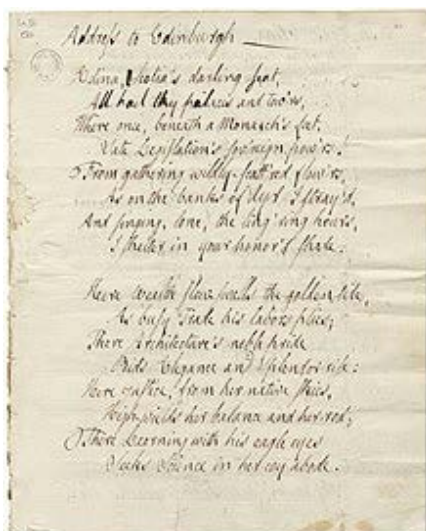 Address to Edinburgh
Edina, Scotia's darling seat,
All hail thy palaces and tow'rs,
Where once, beneath a Monarch's feet,
Sate Legislation's sov'reign pow'rs!
From gathering wildly-scatt'red flow'rs,
As on the banks of Ayr I stray'd,
And singing, lone, the ling'ring hours,
I shelter in your honor'd shade.
Here Wealth still swells the golden tide,
As busy Trade his labors plies;
There Architecture's noble pride
Bids Elegance and Splendor rise:
Here Justice, from her native skies,
High wields her balance and her rod;
There Learning with his eagle eyes
Seeks Science in her coy abode.